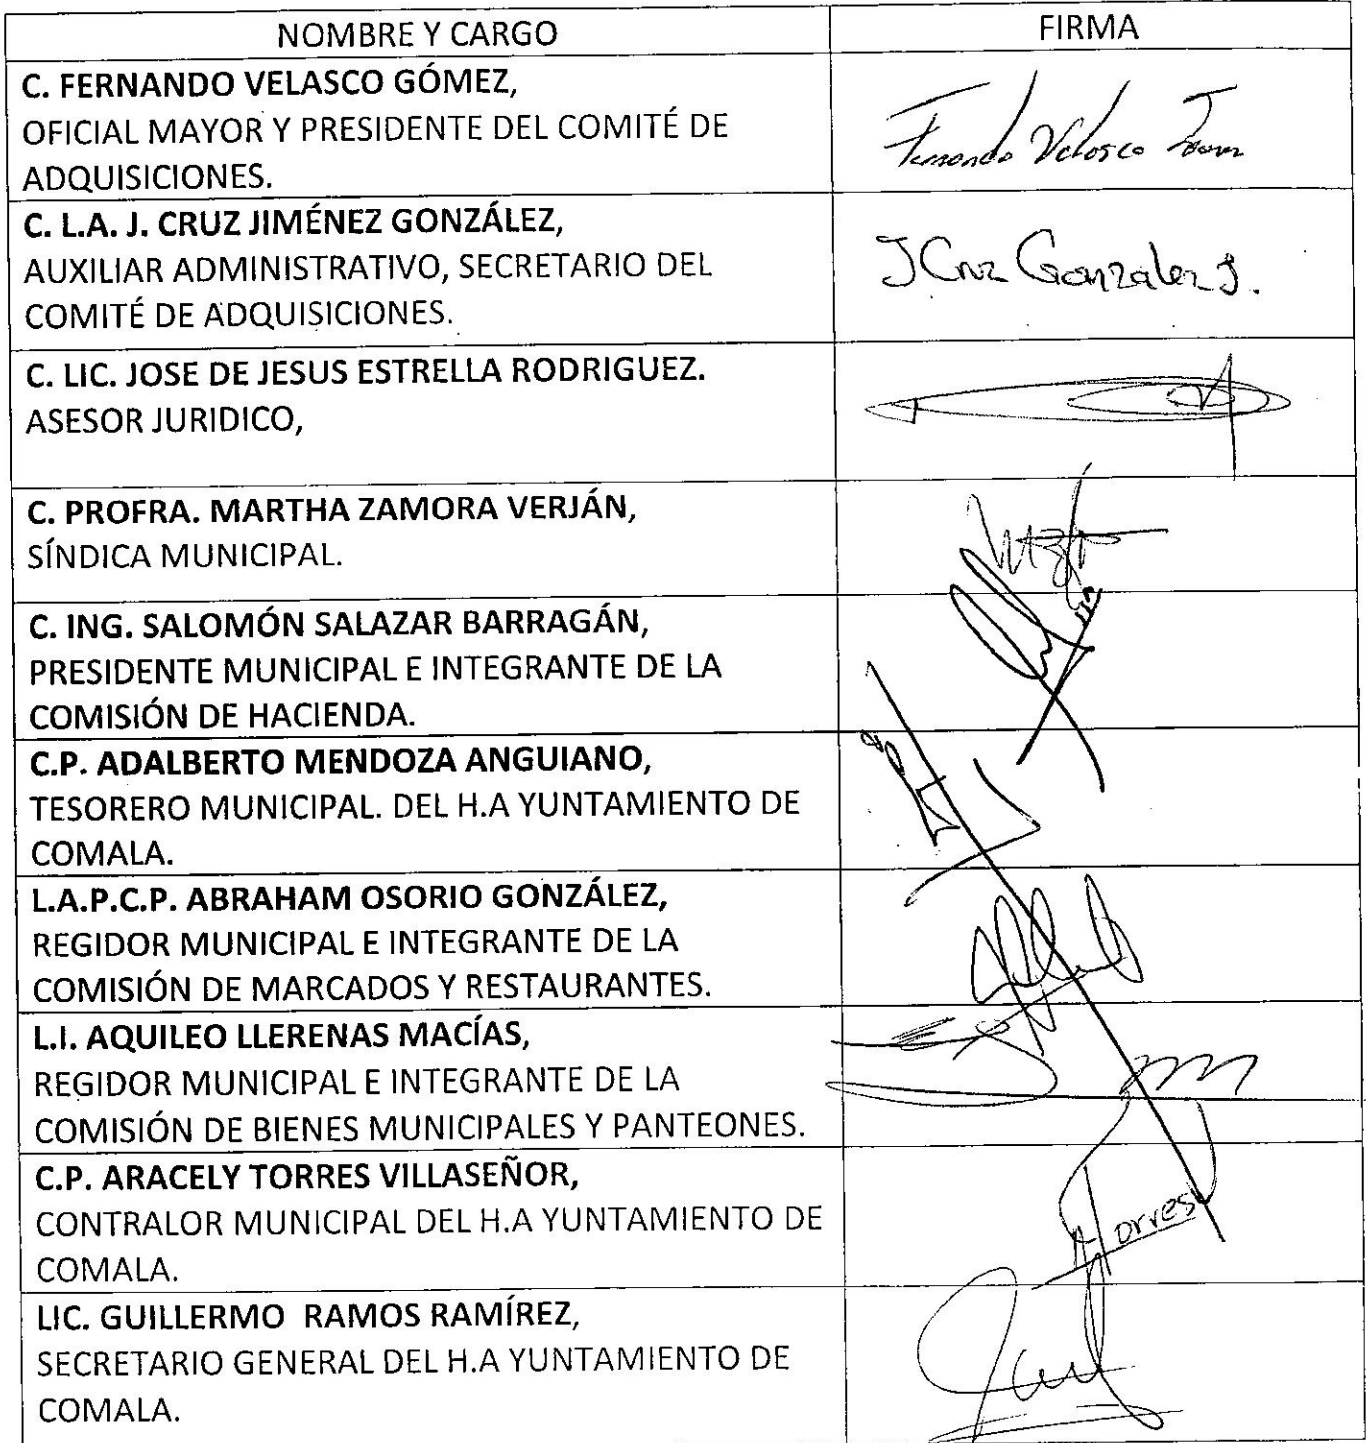 NOMBRE Y CARGO FIRMA
C. FERNANDO VELASCO GÓMEZ,
OFICIAL MAYOR Y PRESIDENTE DEL COMITÉ DE
ADQUISICIONES.
Fernando Velasco
C. L.A. J. CRUZ JIMÉNEZ GONZÁLEZ,
AUXILIAR ADMINISTRATIVO, SECRETARIO DEL
COMITÉ DE ADQUISICIONES.
J Cruz Gonzalez J.
C. LIC. JOSE DE JESUS ESTRELLA RODRIGUEZ.
ASESOR JURIDICO,
C. PROFRA. MARTHA ZAMORA VERJÁN,
SÍNDICA MUNICIPAL.
C. ING. SALOMÓN SALAZAR BARRAGÁN,
PRESIDENTE MUNICIPAL E INTEGRANTE DE LA
COMISIÓN DE HACIENDA.
C.P. ADALBERTO MENDOZA ANGUIANO,
TESORERO MUNICIPAL. DEL H.A YUNTAMIENTO DE
COMALA.
L.A.P.C.P. ABRAHAM OSORIO GONZÁLEZ,
REGIDOR MUNICIPAL E INTEGRANTE DE LA
COMISIÓN DE MARCADOS Y RESTAURANTES.
L.I. AQUILEO LLERENAS MACÍAS,
REGIDOR MUNICIPAL E INTEGRANTE DE LA
COMISIÓN DE BIENES MUNICIPALES Y PANTEONES.
C.P. ARACELY TORRES VILLASEÑOR,
CONTRALOR MUNICIPAL DEL H.A YUNTAMIENTO DE
COMALA.
Torres
LIC. GUILLERMO RAMOS RAMÍREZ,
SECRETARIO GENERAL DEL H.A YUNTAMIENTO DE
COMALA.